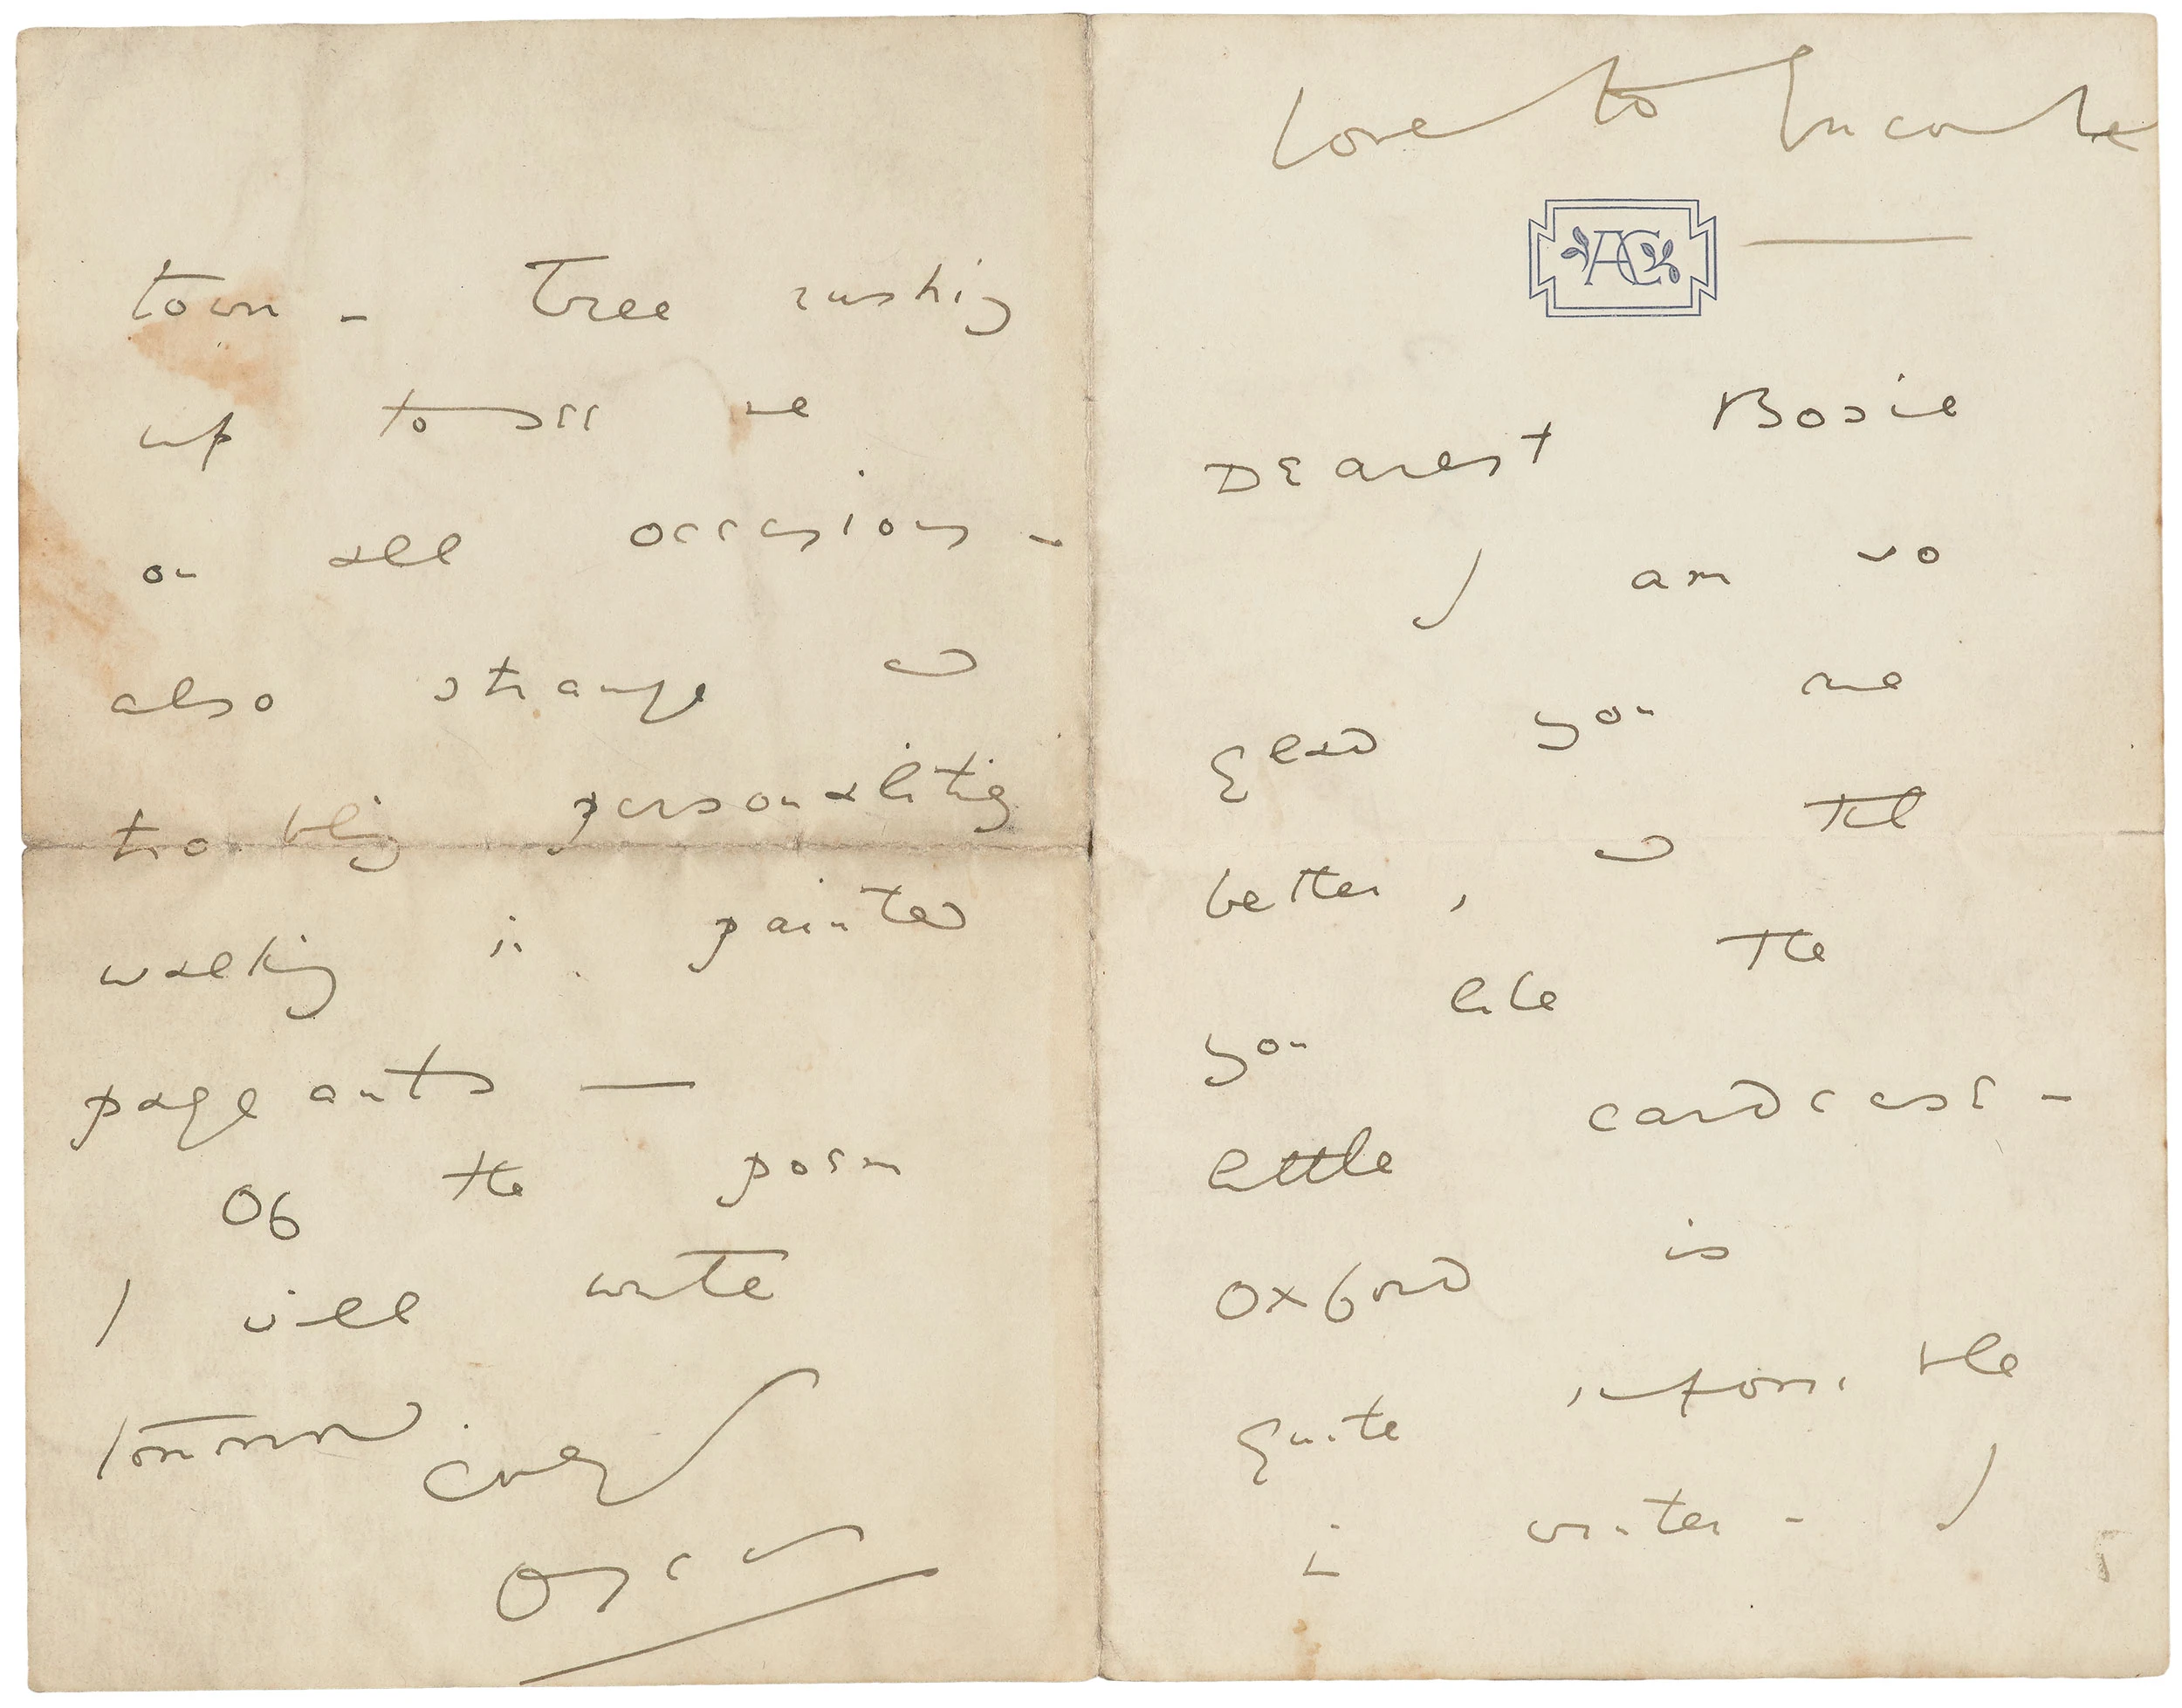 Love to Encombe
AC
Dearest Bosie
I am so
glad you are
better, & that
you like the
little cardcase -
Oxford is
quite impossible
in winter - I
town - Tree rushing
up to see me
on all occasions -
also strange &
troubling personalities
walking in painted
pageants —
Of the poem
I will write
tomorrow. Ever yrs
Oscar